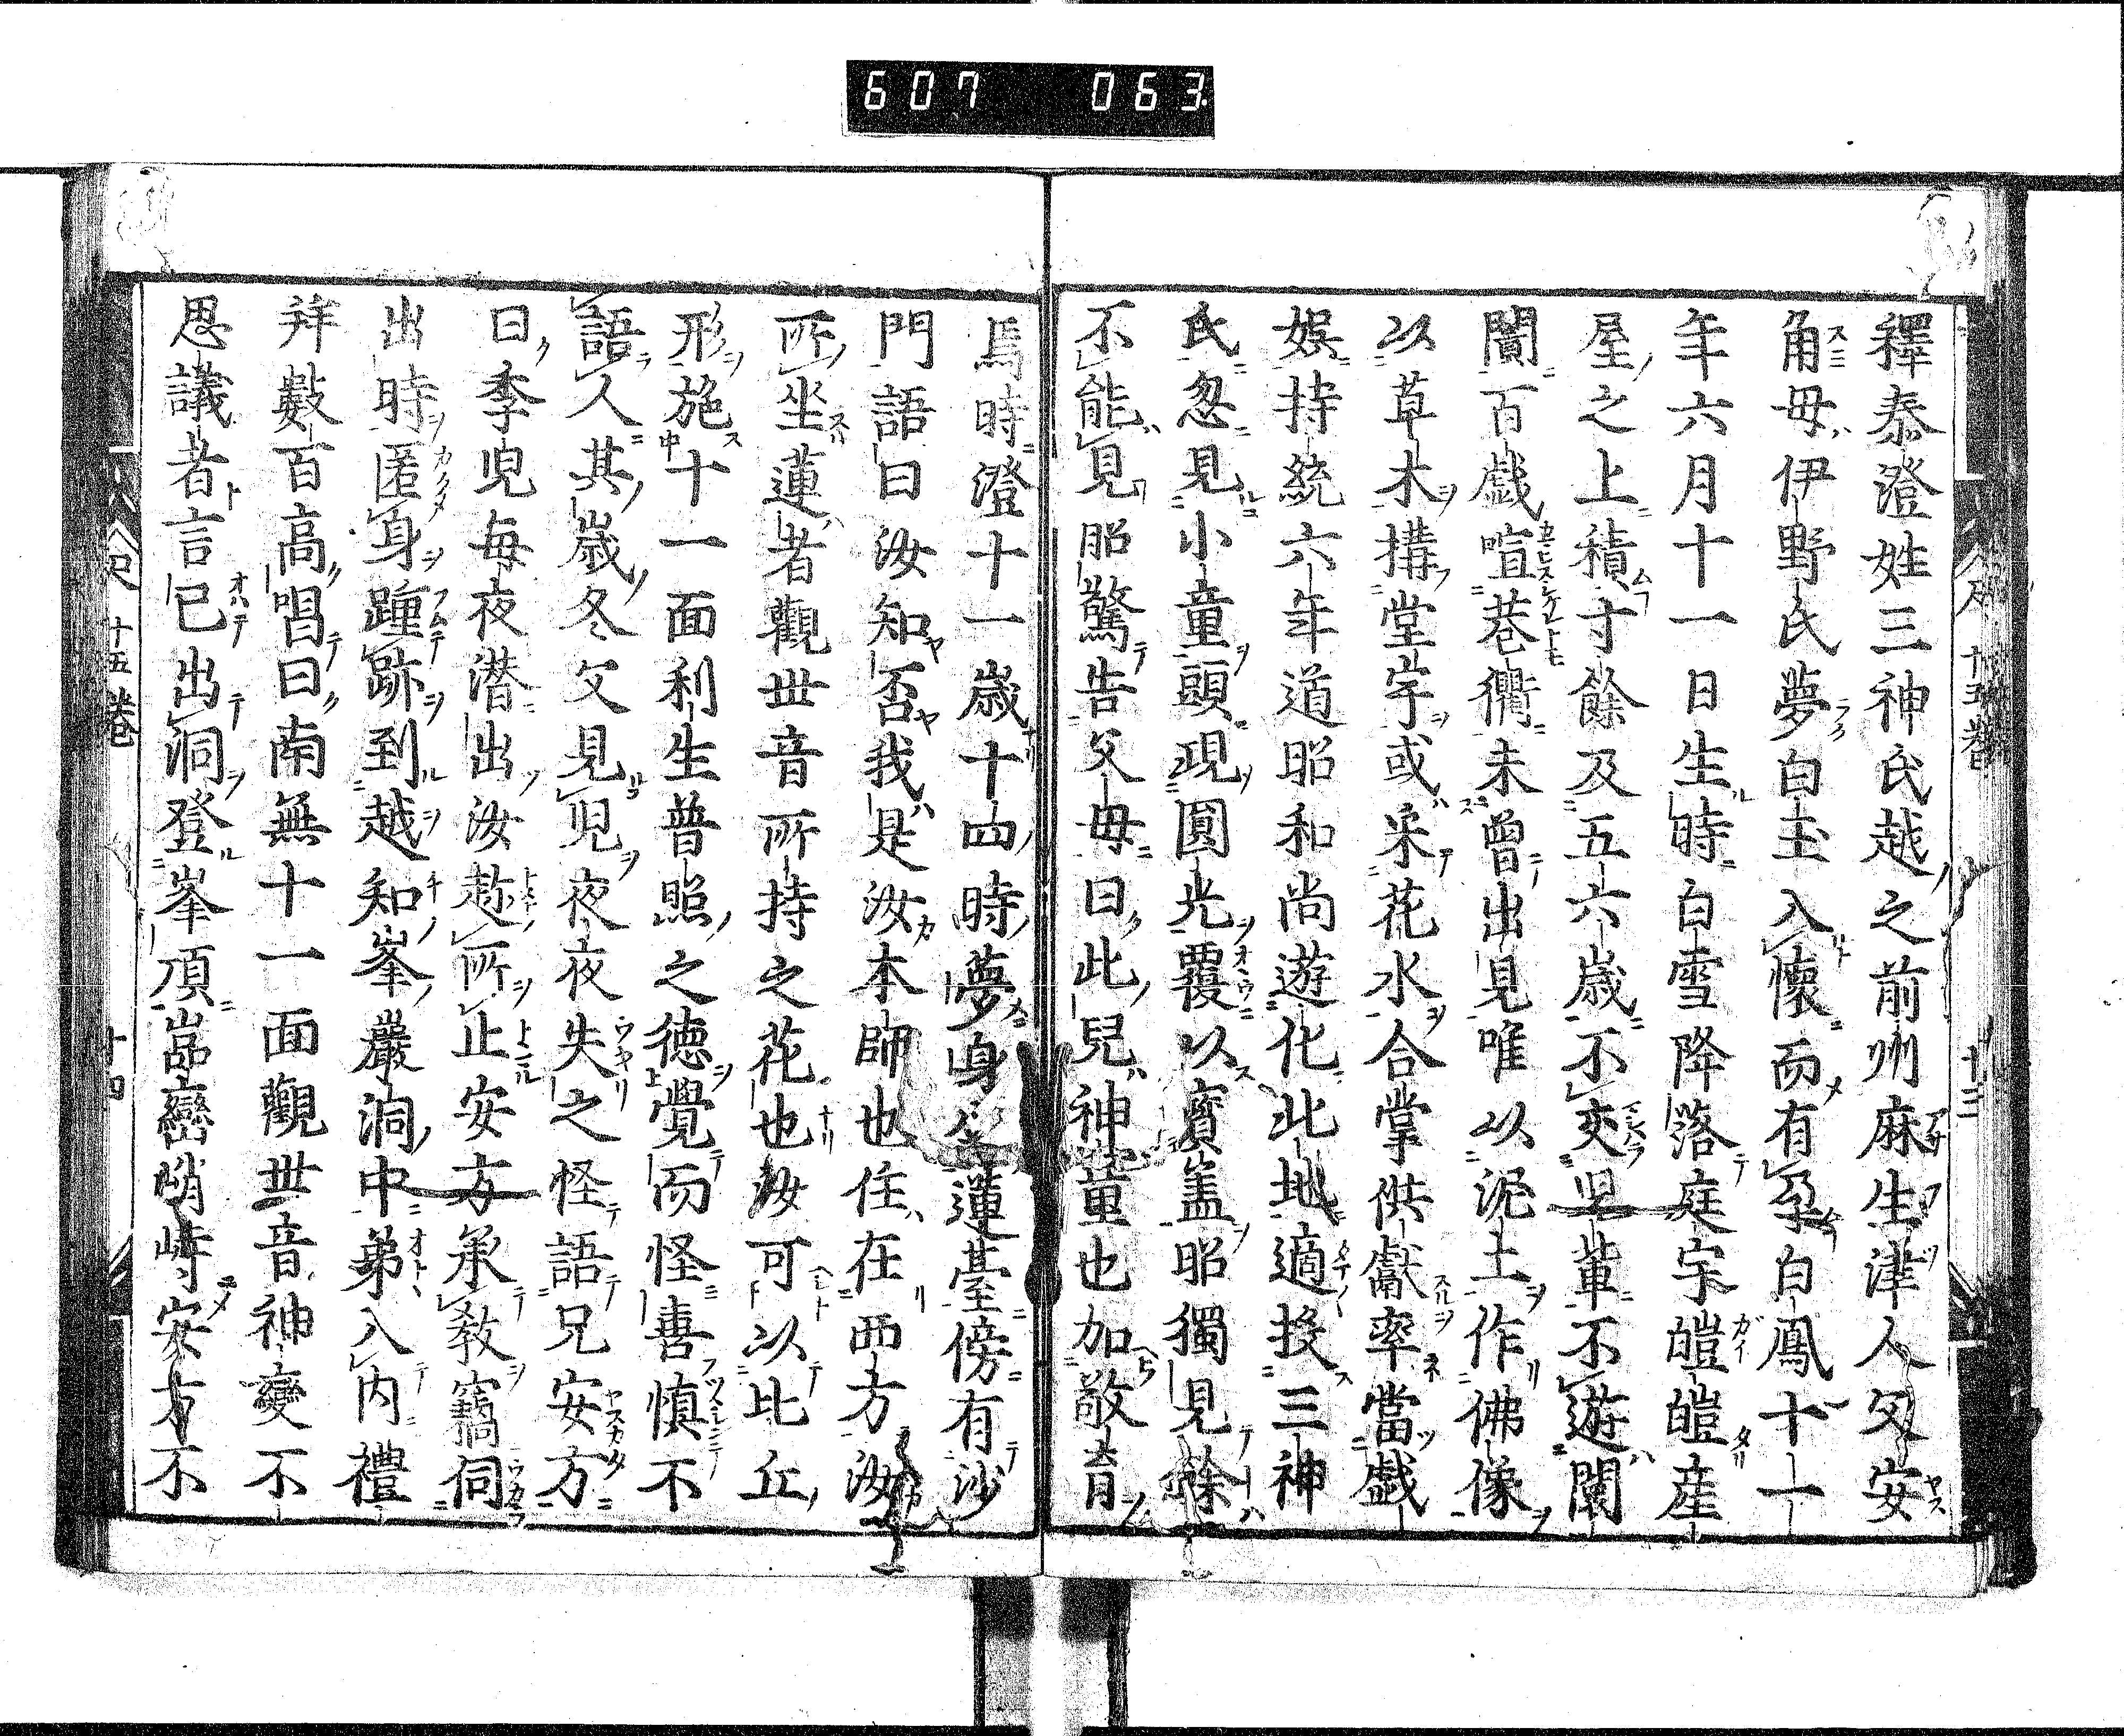 607 063
釋泰澄姓三神氏越之前州麻生津人父安
角母伊野氏夢白玉入懷而有孕白鳳十一
年六月十一日生時白雪降落庭宇皚皚產
屋之上積寸餘及五六歲不交児輩不遊闤
闠百戯喧巷衢未曾出見唯以泥土作佛像
以草木搆堂宇或采花水合掌供獻率當戯
娯持統六年道昭和尚遊化此地適投三神
氏忽見小童頭現圓光覆以寳盖昭獨見餘
不能見昭驚告父母曰此兒神童也加敬育
焉時澄十一歲十四時夢身坐蓮臺傍有沙
門語曰汝知否我是汝本師也住在西方汝
所坐蓮者觀世音所持之花也汝可以比丘
形施十一面利生普照之徳覺而怪喜慎不
語人其歲冬父見児夜夜失之怪語兄安方
曰季児每夜潜出汝趂所止安方承敎竊伺
出時匿身踵跡到越知峯巖洞中弟入内禮
拜數百高唱曰南無十一面觀世音神變不
思議者言已出洞登峯頂嵓巒峭峙安方不
十五卷 十三
十五卷 十四